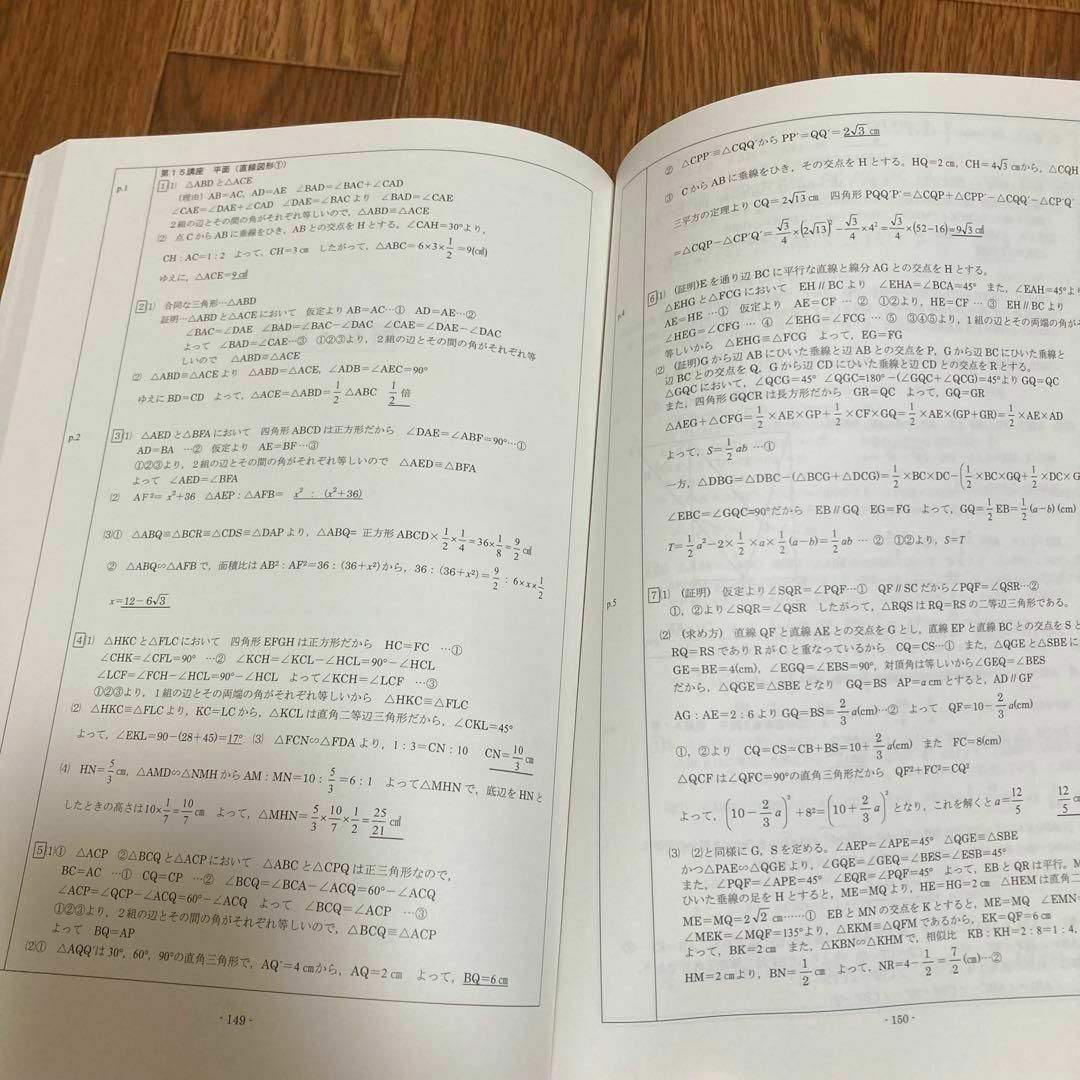 第15講座　平面（直線図形①）
p.1
1 ⑴　△ABDと△ACE
（理由）AB=AC，AD=AE　∠BAD=∠BAC+∠CAD
∠CAE=∠DAE+∠CAD　∠DAE=∠BACより　∠BAD=∠CAE
２組の辺とその間の角がそれぞれ等しいので，△ABD≡△ACE
⑵　点CからABに垂線をひき、ABとの交点をHとする。∠CAH=30°より，
CH：AC=1：2　よって，CH=3㎝　したがって，△ABC=6×3×1/2=9(㎠)
ゆえに，△ACE=9㎠
2 ⑴　合同な三角形…△ABD
証明…△ABDと△ACEにおいて　仮定より AB=AC…①　AD=AE…②
∠BAC=∠DAE　∠BAD=∠BAC−∠DAC　∠CAE=∠DAE−∠DAC
よって　∠BAD=∠CAE…③　①②③より，２組の辺とその間の角がそれぞれ等
しいので　△ABD≡△ACE
⑵　△ABD≡△ACEより　△ABD=△ACE，∠ADB=∠AEC=90°
ゆえにBD=CD　よって，△ACE=△ABD=1/2△ABC　1/2倍
p.2
3 ⑴　△AEDと△BFAにおいて　四角形ABCDは正方形だから　∠DAE=∠ABF=90°…①
AD=BA　…②　仮定より　AE=BF…③
①②③より，２組の辺とその間の角がそれぞれ等しいので　△AED≡△BFA
よって　∠AED=∠BFA
⑵　AF²=x²+36　△AEP：△AFB=　x²　：　(x²+36)
⑶①　△ABQ≡△BCR≡△CDS≡△DAPより，△ABQ=正方形ABCD×1/2×1/4=36×1/8=9/2㎠
②　△ABQ∽△AFBで，面積比はAB²：AF²=36：(36+x²)から，36：(36+x²)=9/2：6×x×1/2
x=12−6√3
4 ⑴　△HKCと△FLCにおいて　四角形EFGHは正方形だから　HC=FC　…①
∠CHK=∠CFL=90°　…②　∠KCH=∠KCL−∠HCL=90°−∠HCL
∠LCF=∠FCH−∠HCL=90°−∠HCL　よって∠KCH=∠LCF　…③
①②③より，１組の辺とその両端の角がそれぞれ等しいから　△HKC≡△FLC
⑵　△HKC≡△FLCより，KC=LCから，△KCLは直角二等辺三角形だから，∠CKL=45°
よって，∠EKL=90−(28+45)=17°　⑶　△FCN∽△FDAより，1：3=CN：10　CN=10/3㎝
⑷　HN=5/3㎝，△AMD∽△NMHからAM：MN=10：5/3=6：1　よって△MHNで，底辺をHNと
したときの高さは10×1/7=10/7㎝　よって，△MHN=5/3×10/7×1/2=25/21㎠
5 ⑴①　△ACP　②△BCQと△ACPにおいて　△ABCと△CPQは正三角形なので，
BC=AC　…①　CQ=CP　…②　∠BCQ=∠BCA−∠ACQ=60°−∠ACQ
∠ACP=∠QCP−∠ACQ=60°−∠ACQ　よって　∠BCQ=∠ACP　…③
①②③より，２組の辺とその間の角がそれぞれ等しいので，△BCQ≡△ACP
よって　BQ=AP
⑵①　△AQQ′は30°，60°，90°の直角三角形で，AQ′=4㎝から，AQ=2㎝　よって，BQ=6㎝
- 149 -
②　△CPP′≡△CQQ′から PP′=QQ′=2√3㎝
③　CからABに垂線をひき，その交点をHとする。HQ=2㎝，CH=4√3㎝から，△CQH
三平方の定理より CQ=2√13㎝　四角形PQQ′P′=△CQP+△CPP′−△CQQ′−△CP′Q′
=△CQP−△CP′Q′=√3/4×(2√13)²−√3/4×4²=√3/4×(52−16)=9√3㎠
p.4
6 ⑴　(証明)Eを通り辺BCに平行な直線と線分AGとの交点をHとする。
△EHGと△FCGにおいて　EH∥BCより　∠EHA=∠BCA=45°　また，∠EAH=45°より
AE=HE　…①　仮定より　AE=CF　…②　①②より，HE=CF　…③　EH∥BCより
∠HEG=∠CFG　…④　∠EHG=∠FCG　…⑤　③④⑤より，１組の辺とその両端の角が
等しいから　△EHG≡△FCG　よって，EG=FG
⑵　(証明)Gから辺ABにひいた垂線と辺ABとの交点をP，Gから辺BCにひいた垂線と
辺BCとの交点をQ，Gから辺CDにひいた垂線と辺CDとの交点をRとする。
△GQCにおいて，∠QCG=45°　∠QGC=180°−(∠GQC+∠QCG)=45°より GQ=QC
また，四角形GQCRは長方形だから　GR=QC　よって，GQ=GR
△AEG+△CFG=1/2×AE×GP+1/2×CF×GQ=1/2×AE×(GP+GR)=1/2×AE×AD
よって，S=1/2ab　…①
一方，△DBG=△DBC−(△BCG+△DCG)=1/2×BC×DC−(1/2×BC×GQ+1/2×DC×G
∠EBC=∠GQC=90°だから　EB∥GQ　EG=FG　よって，GQ=1/2EB=1/2(a−b)(cm)
T=1/2a²−2×1/2×a×1/2(a−b)=1/2ab　…②　①②より，S=T
p.5
7 ⑴　(証明)　仮定より∠SQR=∠PQF…①　QF∥SCだから∠PQF=∠QSR…②
①，②より∠SQR=∠QSR　したがって，△RQSはRQ=RSの二等辺三角形である。
⑵　(求め方)　直線QFと直線AEとの交点をGとし，直線EPと直線BCとの交点をSと
RQ=RSでありRがCと重なっているから　CQ=CS…①　また，△QGEと△SBEに
GE=BE=4(cm)，∠EGQ=∠EBS=90°，対頂角は等しいから∠GEQ=∠BES
だから，△QGE≡△SBEとなり　GQ=BS　AP=acmとすると，AD∥GF
AG：AE=2：6よりGQ=BS=2/3a(cm)…②　よって　QF=10−2/3a(cm)
①，②より　CQ=CS=CB+BS=10+2/3a(cm)　また　FC=8(cm)
△QCFは∠QFC=90°の直角三角形だから　QF²+FC²=CQ²
よって，(10−2/3a)²+8²=(10+2/3a)²となり，これを解くとa=12/5　12/5cm
⑶　⑵と同様にG，Sを定める。∠AEP=∠APE=45°　△QGE≡△SBE
かつ△PAE∽△QGEより，∠GQE=∠GEQ=∠BES=∠ESB=45°
また，∠PQF=∠APE=45°　∠EQR=∠PQF=45°　よって，EBとQRは平行。M
ひいた垂線の足をHとすると，ME=MQより，HE=HG=2㎝　△HEMは直角二
ME=MQ=2√2㎝……①　EBとMNの交点をKとすると，ME=MQ　∠EMN=
∠MEK=∠MQF=135°より，△EKM≡△QFMであるから，EK=QF=6㎝
よって，BK=2㎝　また，△KBN∽△KHMで，相似比　KB：KH=2：8=1：4，
HM=2㎝より，BN=1/2㎝　よって，NR=4−1/2=7/2(㎝)…②
- 150 -